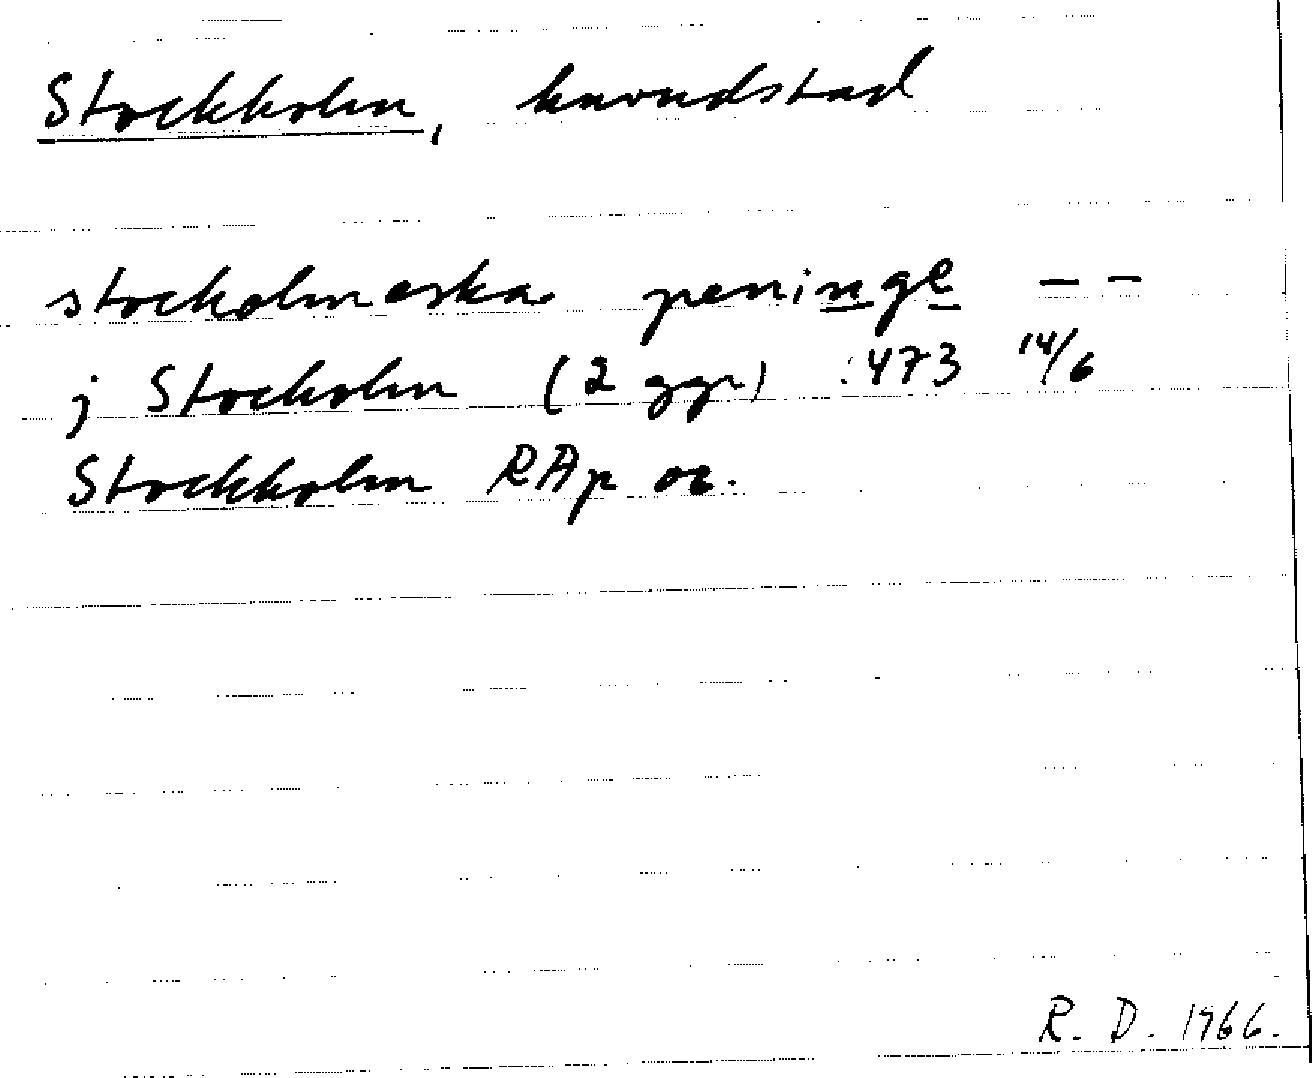 Stockholm, huvudstad
stockolmerska peninge – –
j Stockolm (2 ggr) 1473 14/6
Stockholm RAp or.
R. D. 1966.